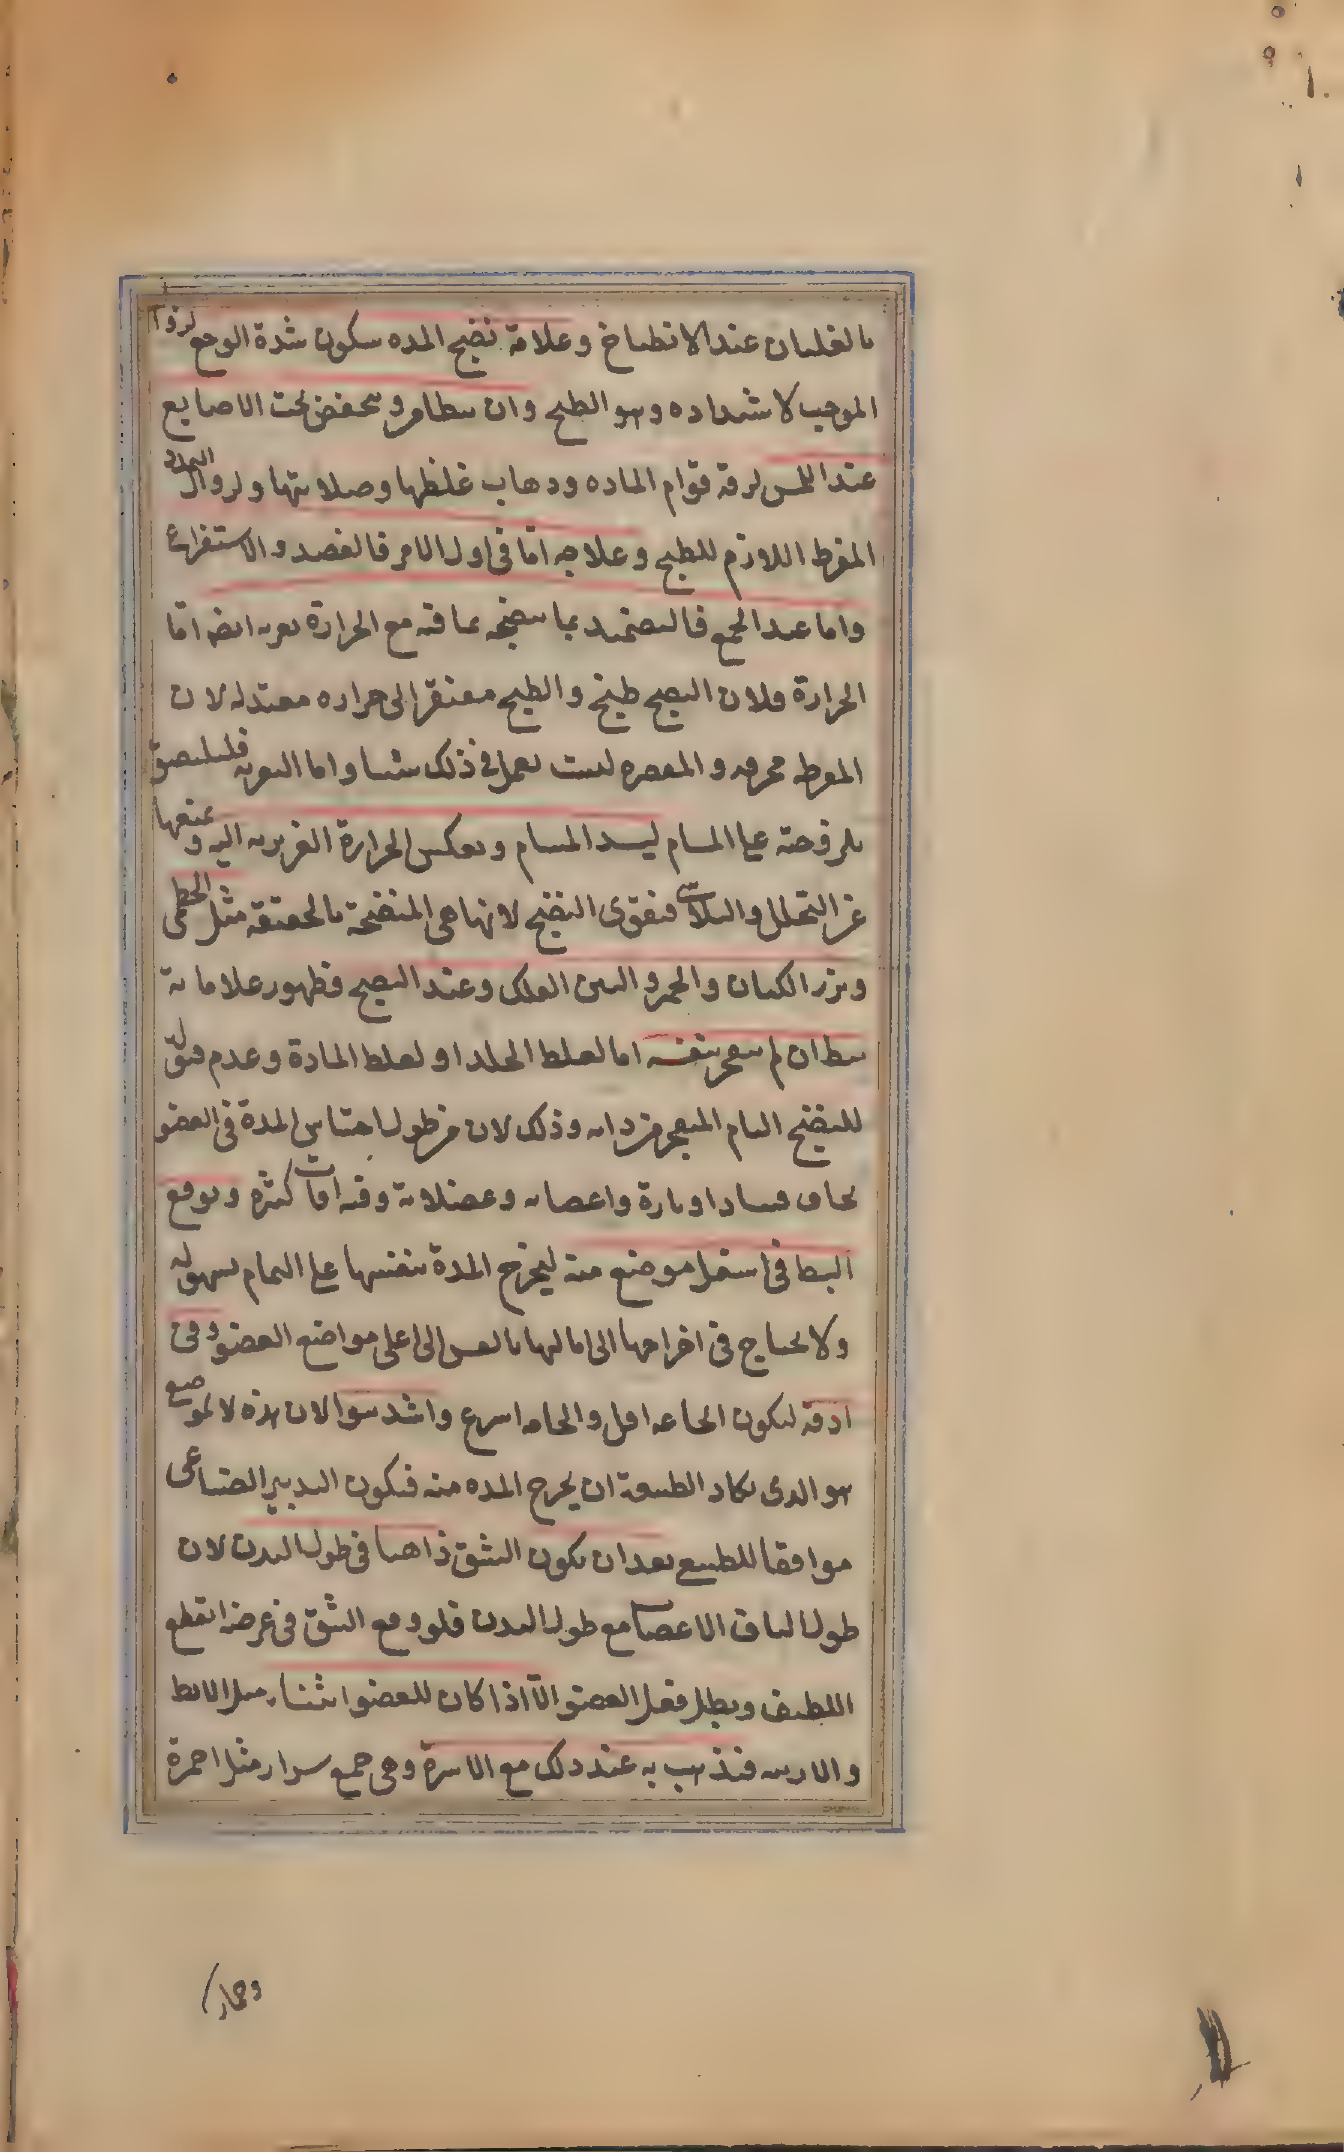 بالغليان عند الانطباخ وعلامة نضج المده سكون شدة الوجع لزوال
الموجب لاشتداده وهو الطبخ وان يتطامن وينخفض تحت الاصابع
عند اللمس لرقة قوام الماده وذهاب غلظها وصلابتها ولزوال التمدد
المفرط اللازم للطبخ وعلاجه امّا فى اول الامر فالفصد والاستفراغ
واما عند الجمع فالتضميد بما ينضجه مما فيه مع الحرارة تغرية ايضا امّا
الحرارة فلان النضج طبخ والطبخ مفتقر الى حراره معتدله لان
المفرطه محرقه والمقصره ليست تعمل فى ذلك شيئا واما التغريه فليلتصق
بلزوجته على المسام ليسد المسام ويعكس الحرارة الغريزيه اليه ويمنعها
عن التحلل والتلاشى فيقوى النضج لانها هى المنضجة بالحقيقة مثل الخطمى
وبزر الكتان والخمير والتين العلك وعند النضج وظهور علاماته
يبط ان لم ينفجر بنفسه اما لغلظ الجلد او لغلظ المادة وعدم قبوله
للنضج التام المنفجر من ذاته وذلك لان من طول احتباس المدة فى العضو
يخاف فساد اوتارة واعصابه وعضلاته وفيه آفات كثيره ويوقع
البط فى اسفل موضع منه ليخرج المدة بنفسها على التمام بسهوله
ولا يحتاج فى اخراجها الى امالتها بالعسر الى اعلى مواضع العضو وفى
ارقه ليكون الحاجه اقل والحامه اسرع واشد نتوا لان هذه الموضع
هو الذى يكاد الطبيعة ان يخرج المده منه فيكون التدبير الصناعى
موافقا للطبيعى بعد ان يكون الشق ذاهبا فى طول البدن لان
طول الياف الاعصاب مع طول البدن فلو وقع الشق فى عرضه انقطع
الليف وبطل فعل العضو الّا اذا كان للعضو انثناء مثل الابط
والاربيه فيذهب به عند ذلك مع الاسرة وهى جمع سرار مثل احمرة
وحمار